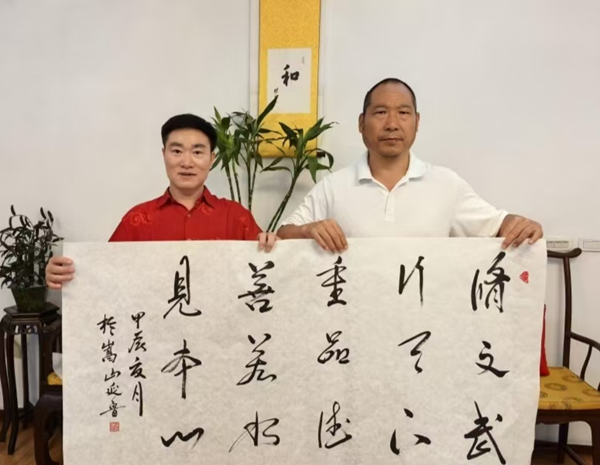 和
脩文武
行天下
重品德
善若水
見本心
甲辰夏月
於嵩山延魯